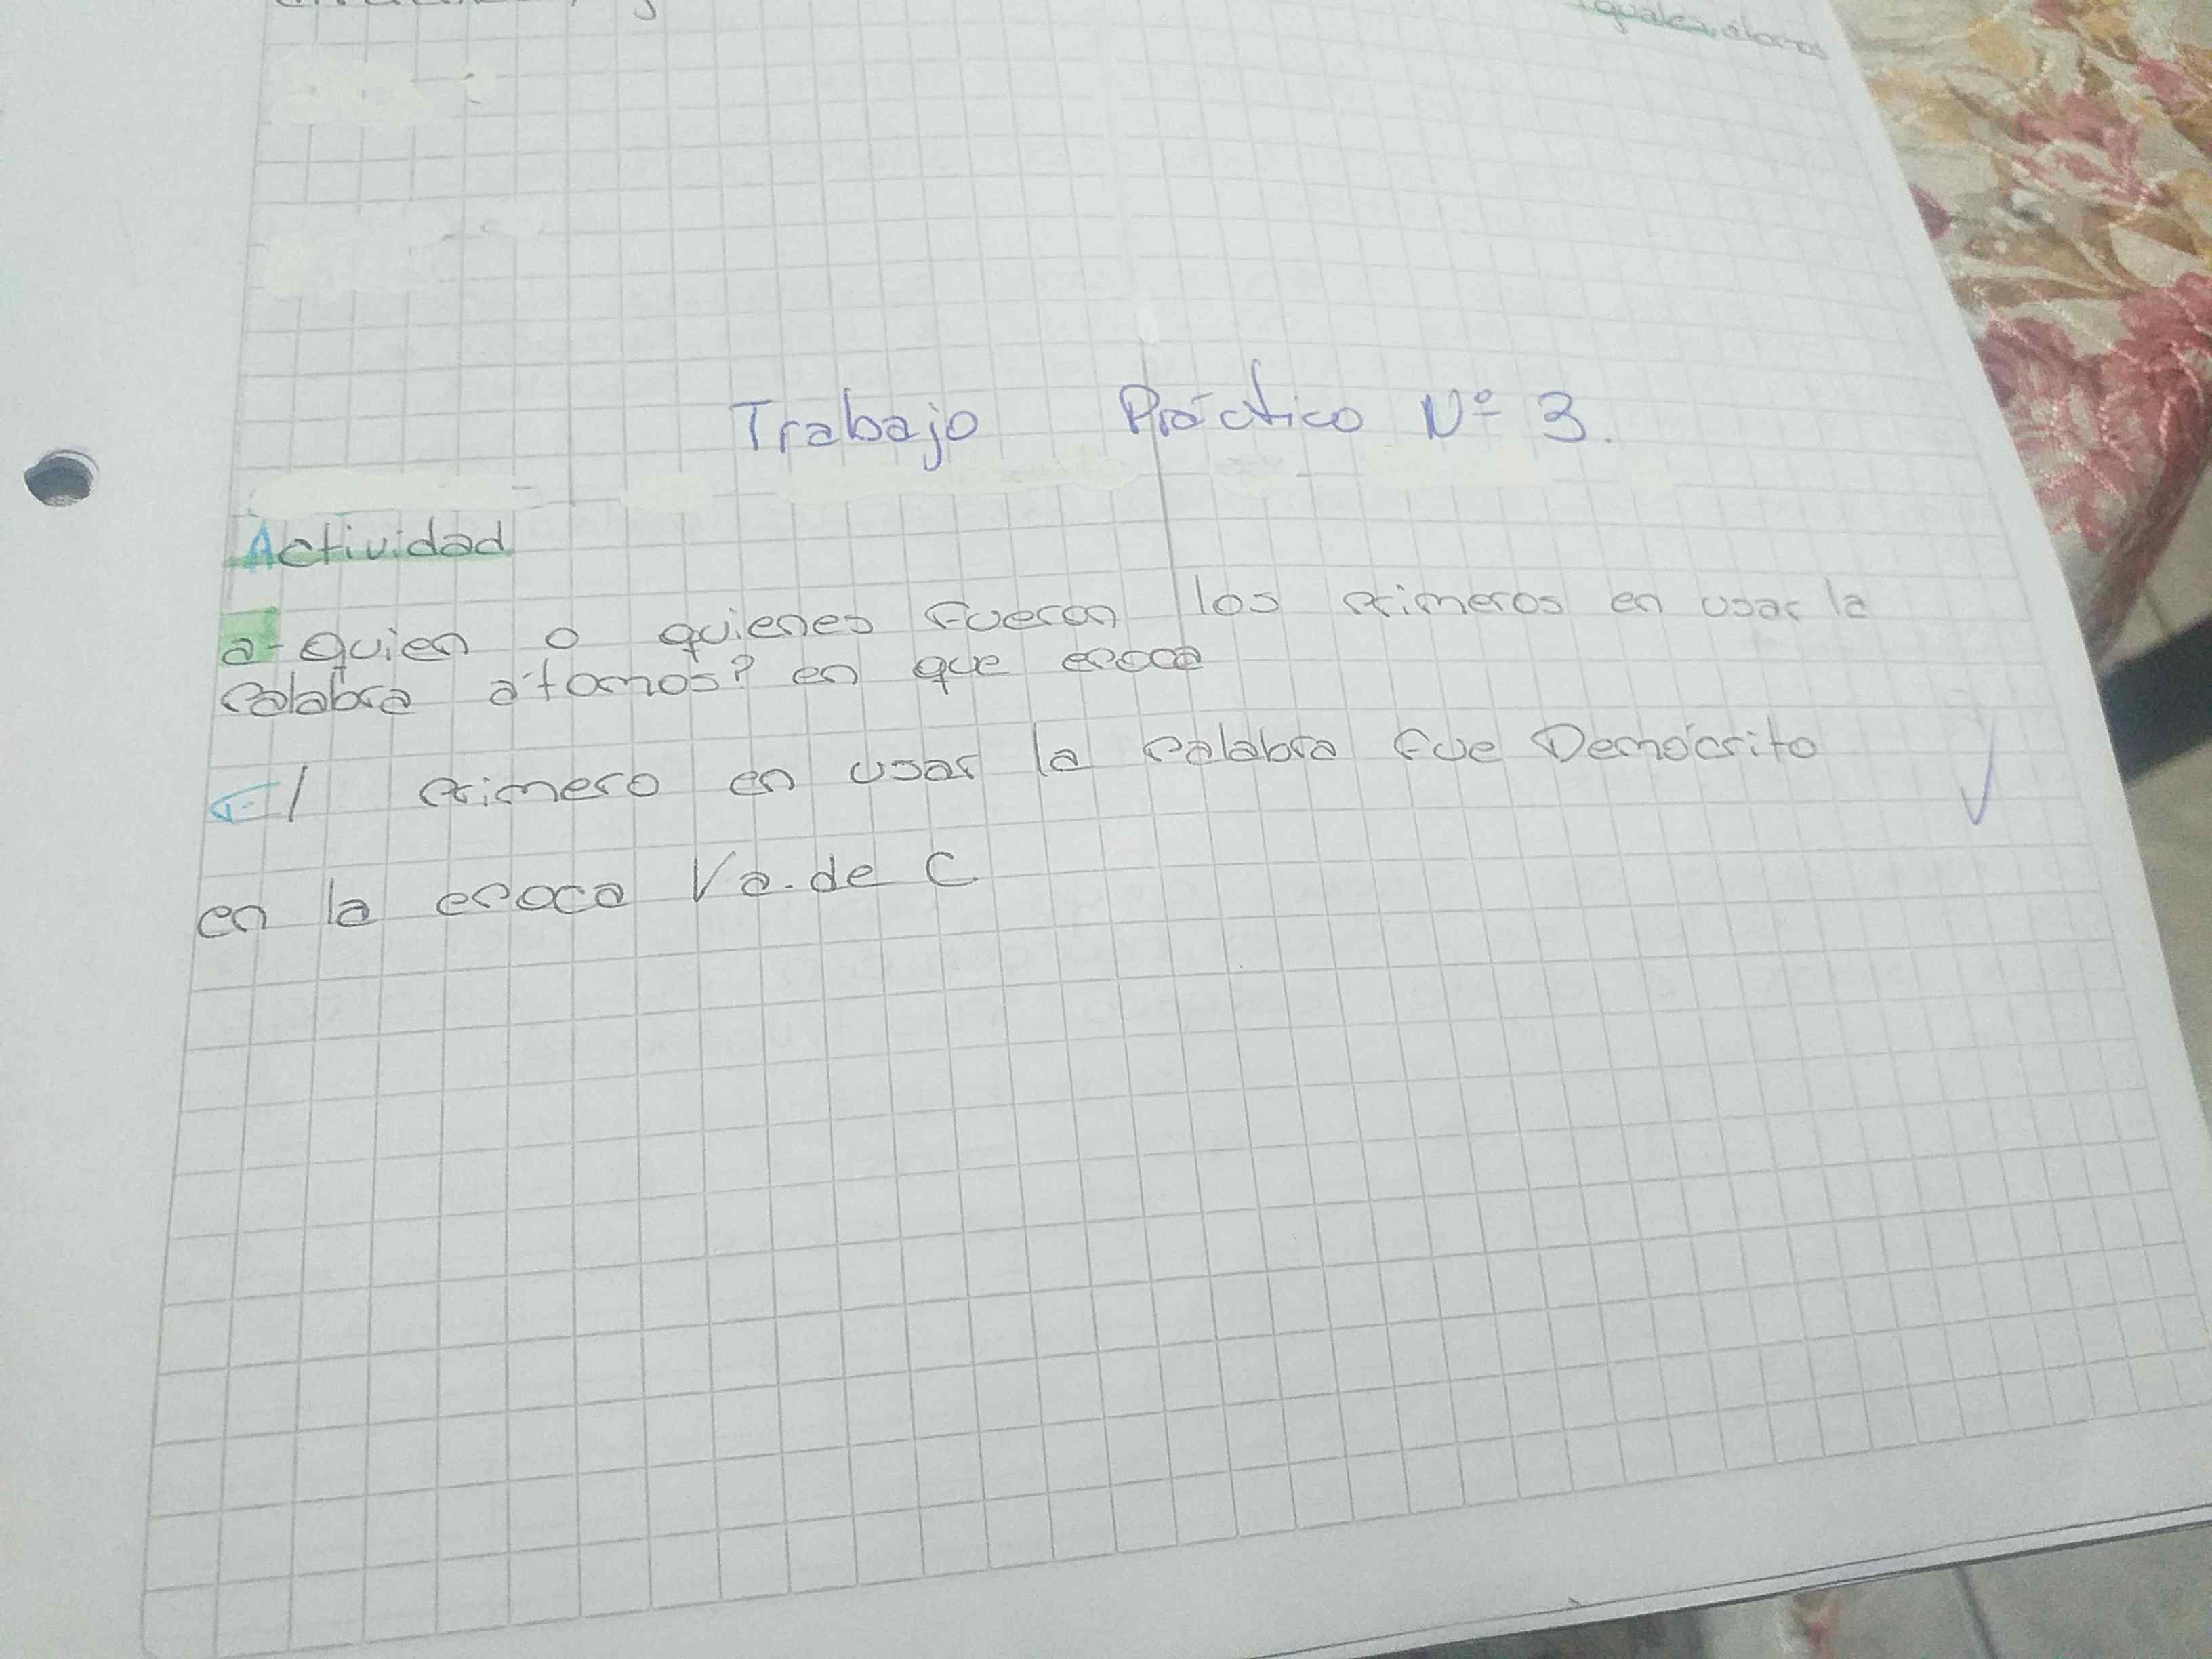 iguales, átomos
Trabajo Práctico Nº 3.
Actividad
a- quien o quienes fueron los primeros en usar la
palabra átomos? en que epoca
El primero en usar la palabra fue Demócrito
en la epoca V a. de C.